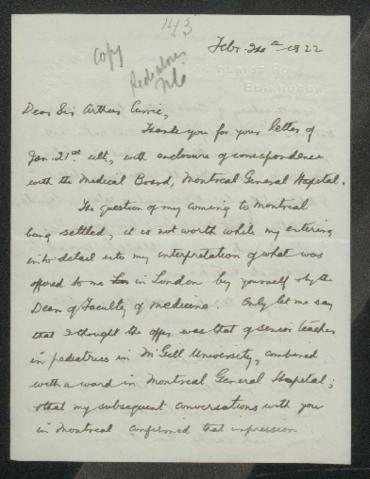 143
Copy
Febr. 20th 1922
Dear Sir Arthur Currie,
Thank you for your letter of
Jan. 21st ult, with enclosure of correspondence
with the Medical Board, Montreal General Hospital.
The question of my coming to Montreal
being settled, it is not worth while my entering
into detail into my interpretation of what was
offered to me in London by yourself & by the
Dean of Faculty of Medicine. Only let me say
that I thought the offer was that of senior teacher
in pediatrics in McGill University, combined
with a ward in Montreal General Hospital;
& that my subsequent conversations with you
in Montreal confirmed that impression